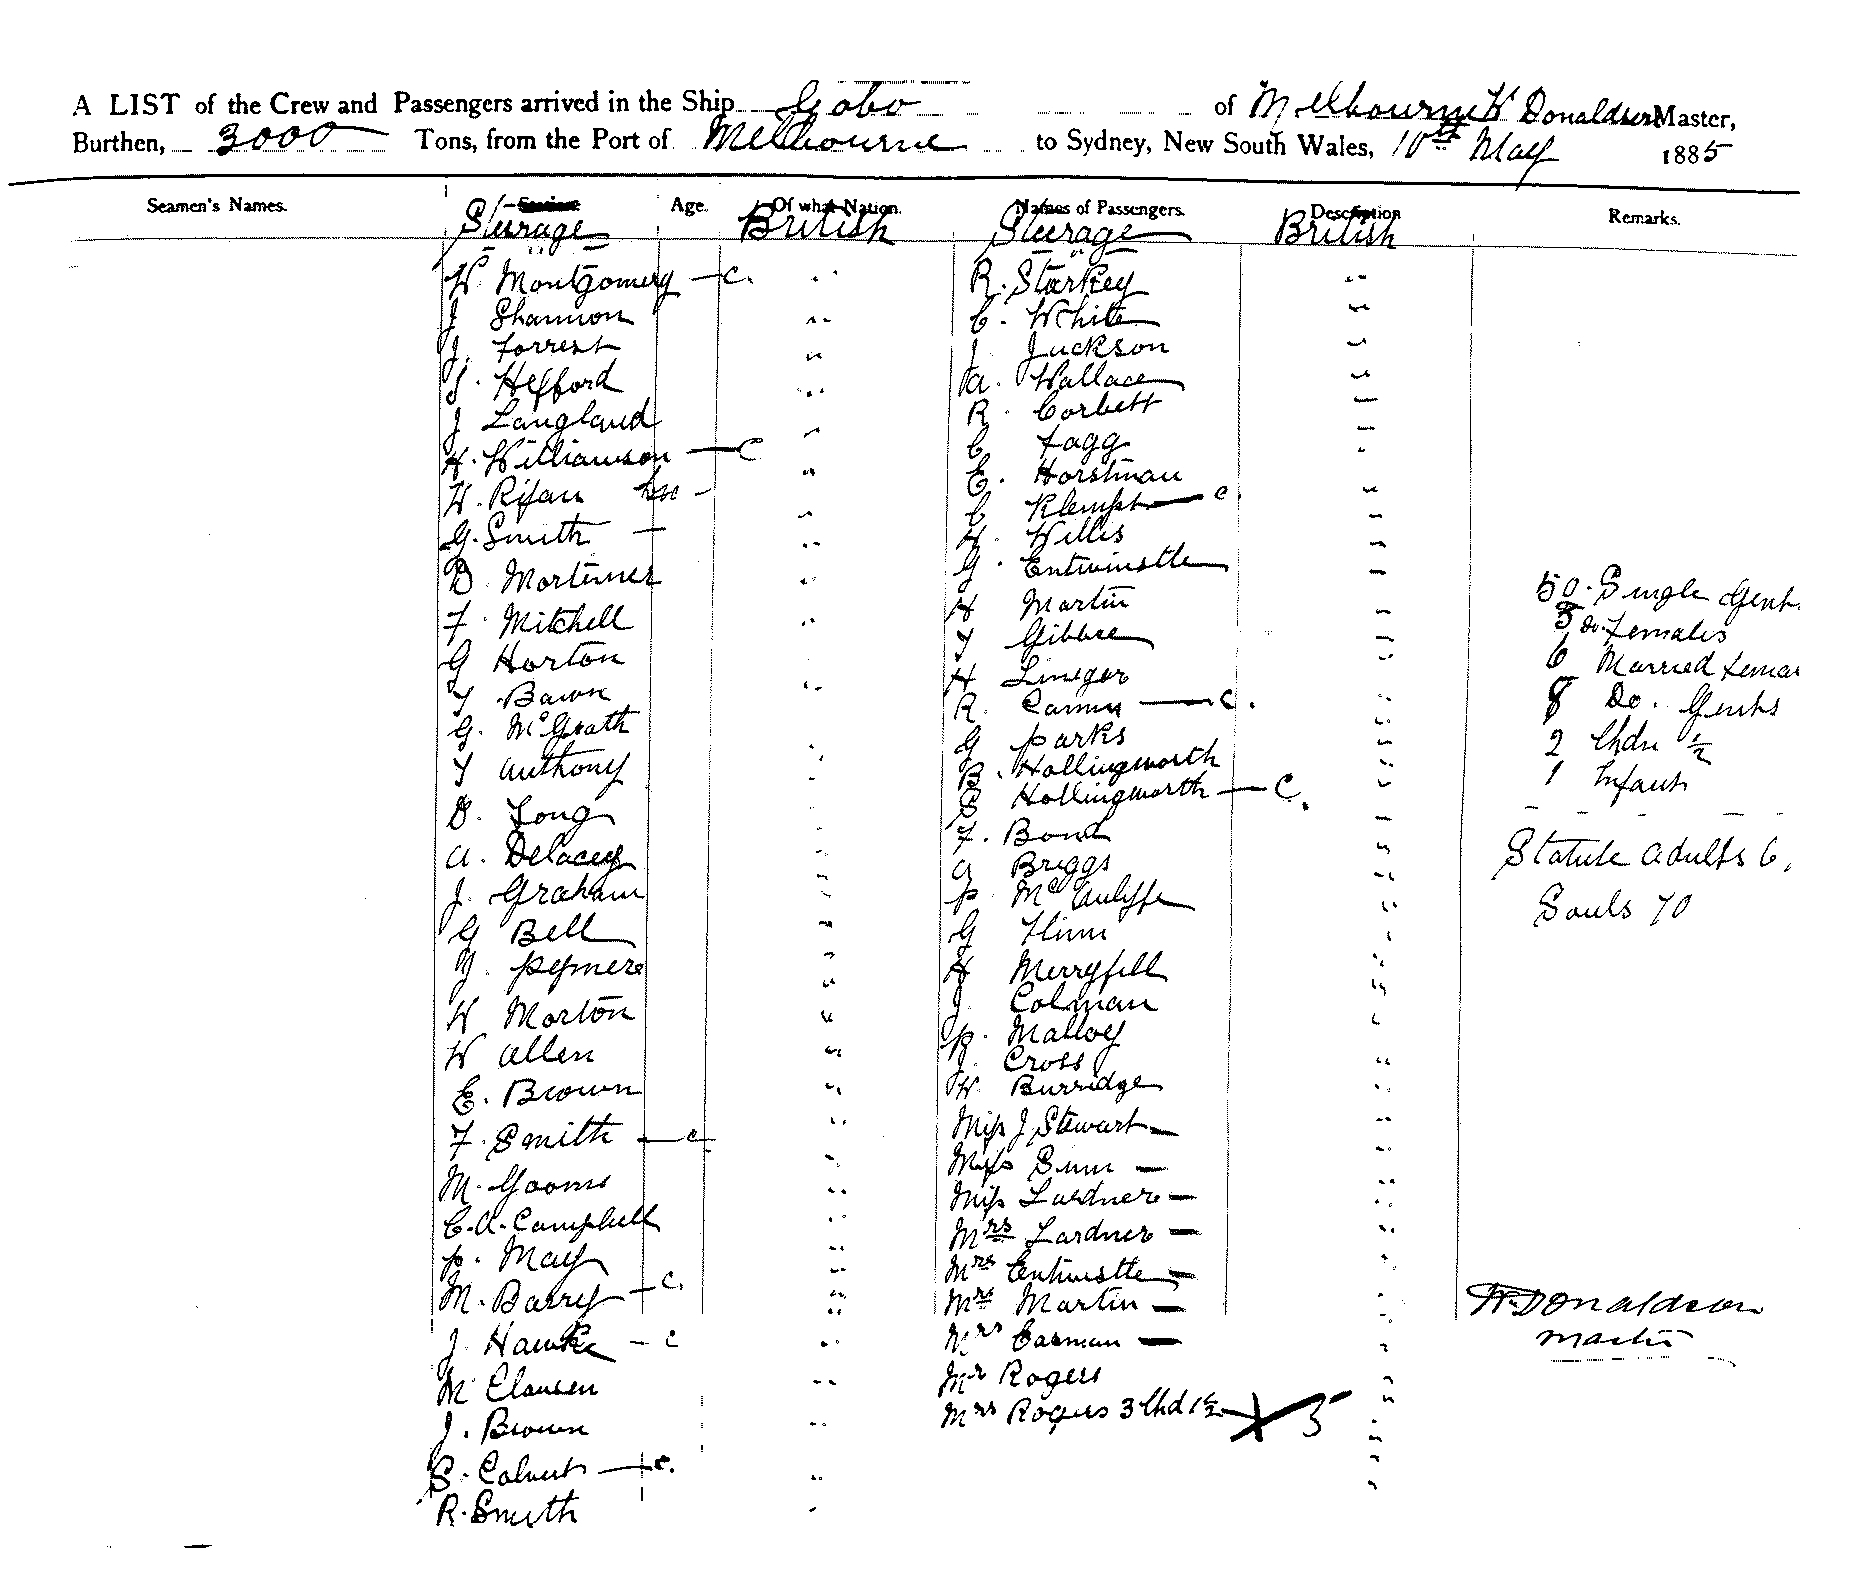 A LIST of the Crew and Passengers arrived in the Ship Gabo of Melbourne W Donaldson Master,
Burthen, 3000 Tons, from the Port of Melbourne to Sydney, New South Wales, 10th May 1885
Seamen's Names. Station Age. Of what Nation. Names of Passengers. Description Remarks.
Steerage British Steerage British
W. Montgomery - C.
J Shannon
J. Forrest
S. Hefford
J Langland
H. Williamson - C
W. Ryan
G. Smith -
D. Mortimer
F. Mitchell
G Horton
T Bawn
G. McGrath
T Anthony
D. Long
A. Delacey
J. Graham
G Bell
W Morton
W Allen
E. Brown
F. Smith - c
M.
C. A. Campbell
P. May
M. Barry - C.
J. Hawke - c
M Clausen
J. Brown
S. Calvert - c.
R. Smith
R. Starkey
C. White
J. Jackson
A. Wallace
R. Corbett
C Fagg
E. Horstman
C Klempt - c.
H. Willis
G. Entwinstle
H Martin
T Gibbee
H Lineger
R. - C.
G Parks
B. Hollingworth
S Hollingworth - C.
F. Bond
A Briggs
P. McAuliffe
G Flinn
H Merryfull
J. Colman
P. Malloy
J. Cross
W. Burridge
Miss J Stewart -
Miss -
Miss Lardner -
Mrs Lardner -
Mrs Entwistle -
Mrs Martin -
Mrs Carman -
Mr Rogers
Mrs Rogers 3 Chd X 5
50. Single Gent.
3 do. Females
6 Married Fema
8 Do. Gents
2 Chdn 1/2
1 Infant
Statute Adults 6,
Souls 70
W. Donaldson
Master